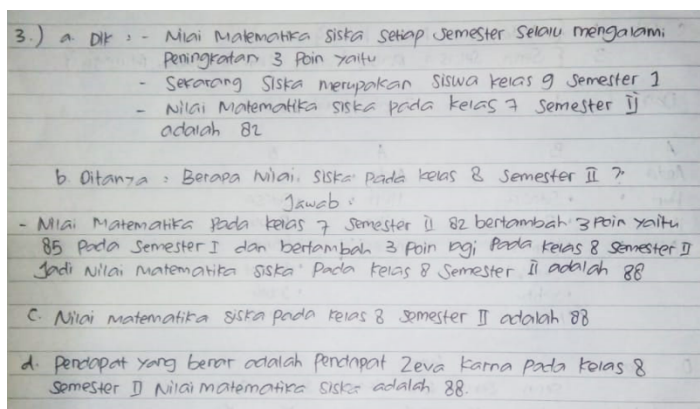 3.) a. Dik : - Nilai Matematika Siska setiap semester selalu mengalami
peningkatan 3 poin yaitu
- Sekarang Siska merupakan siswa kelas 9 semester 1
- Nilai Matematika siska pada kelas 7 semester II
adalah 82
b. Ditanya : Berapa Nilai siska pada kelas 8 semester II ?
Jawab :
- Nilai Matematika pada kelas 7 semester II 82 bertambah 3 poin yaitu
85 pada semester I dan bertambah 3 poin lagi pada kelas 8 semester II
Jadi Nilai matematika siska pada kelas 8 semester II adalah 88
c. Nilai matematika siska pada kelas 8 semester II adalah 88
d. pendapat yang benar adalah pendapat Zeva karna pada kelas 8
semester II Nilai matematika siska adalah 88.